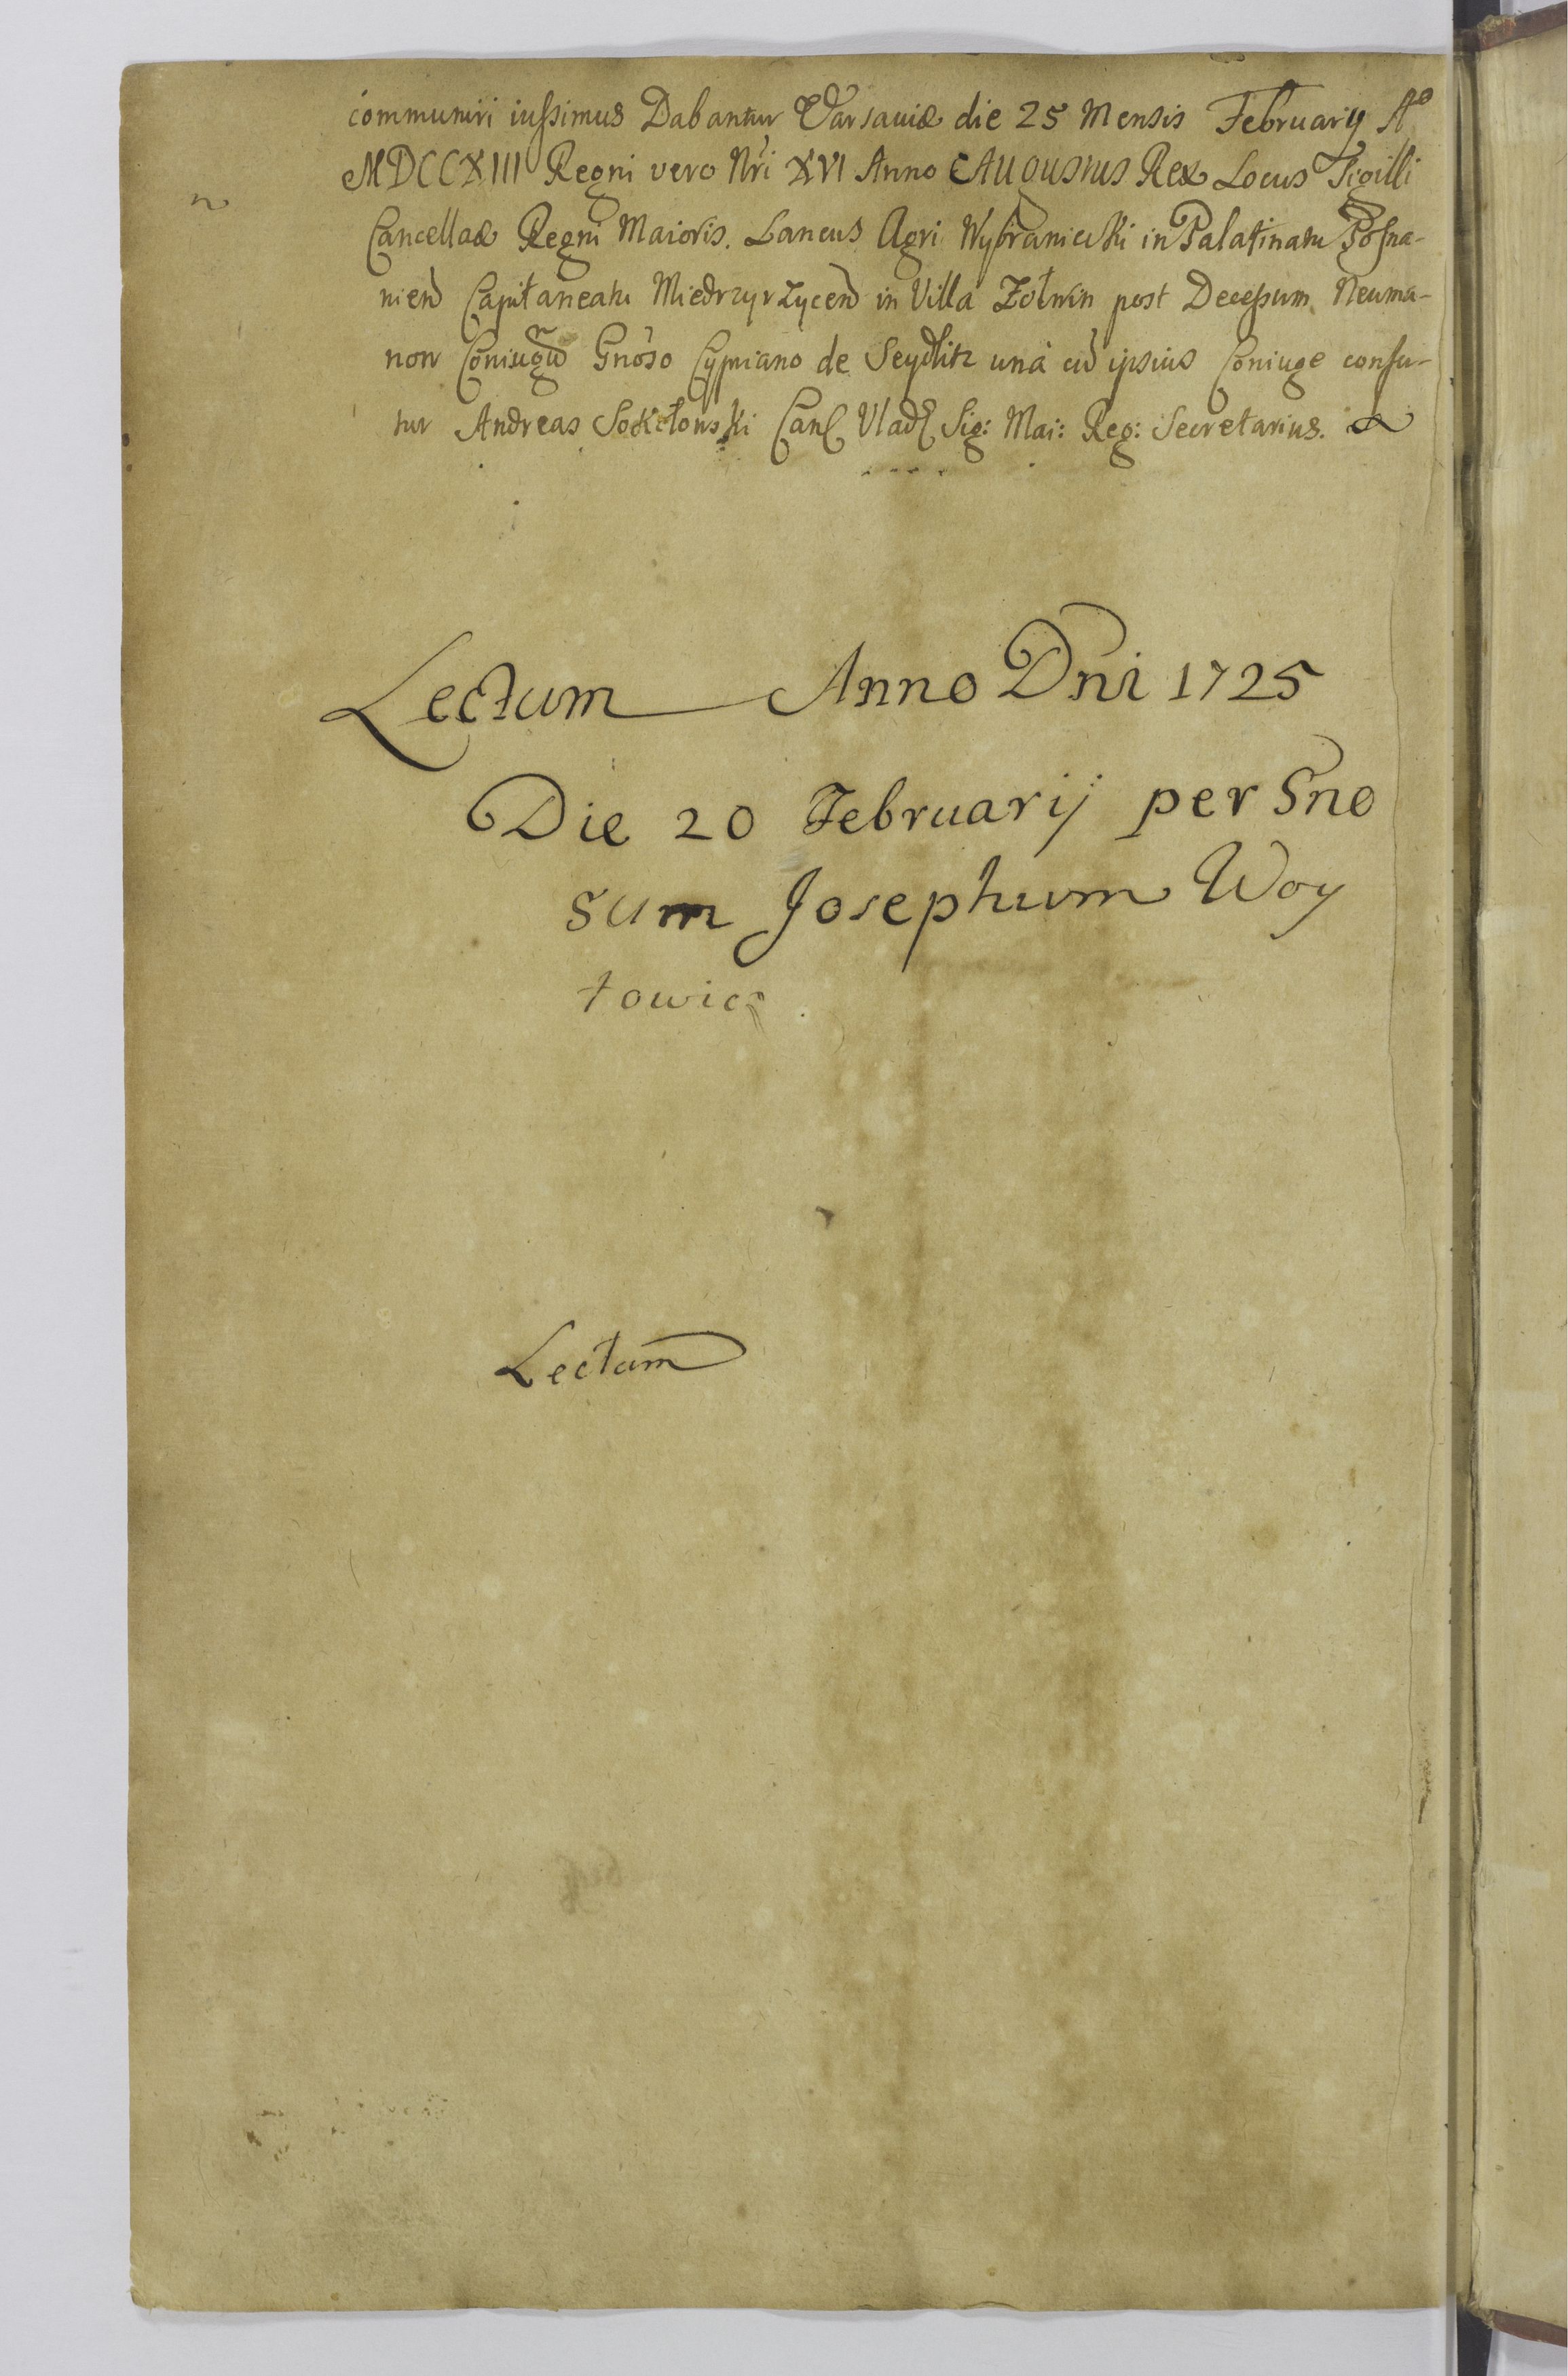 communiri iussimus Dabantur Varsaviæ die 25 Mensis Februarij Aº
MDCCXIII Regni vero Nri XVI Anno Augustus Rex Locus Sigilli
Cancellæ Regni Maioris. Laneus Agri Wybraniecki in Palatinatu Posna-
nien Capitaneatu Miedrzyrzycen in Villa Żołwin post Decessum Neuma-
now Coniugu Gnoso Cypriano de Seydlitz unà cu ipsius Coniuge confu-
tur Andreas Sokołowski Sig: Mai: Reg: Secretarius.
Lectum Anno Dni 1725
Die 20 Februarij per Gno
sum Josephum Woy
towicz
Lectum